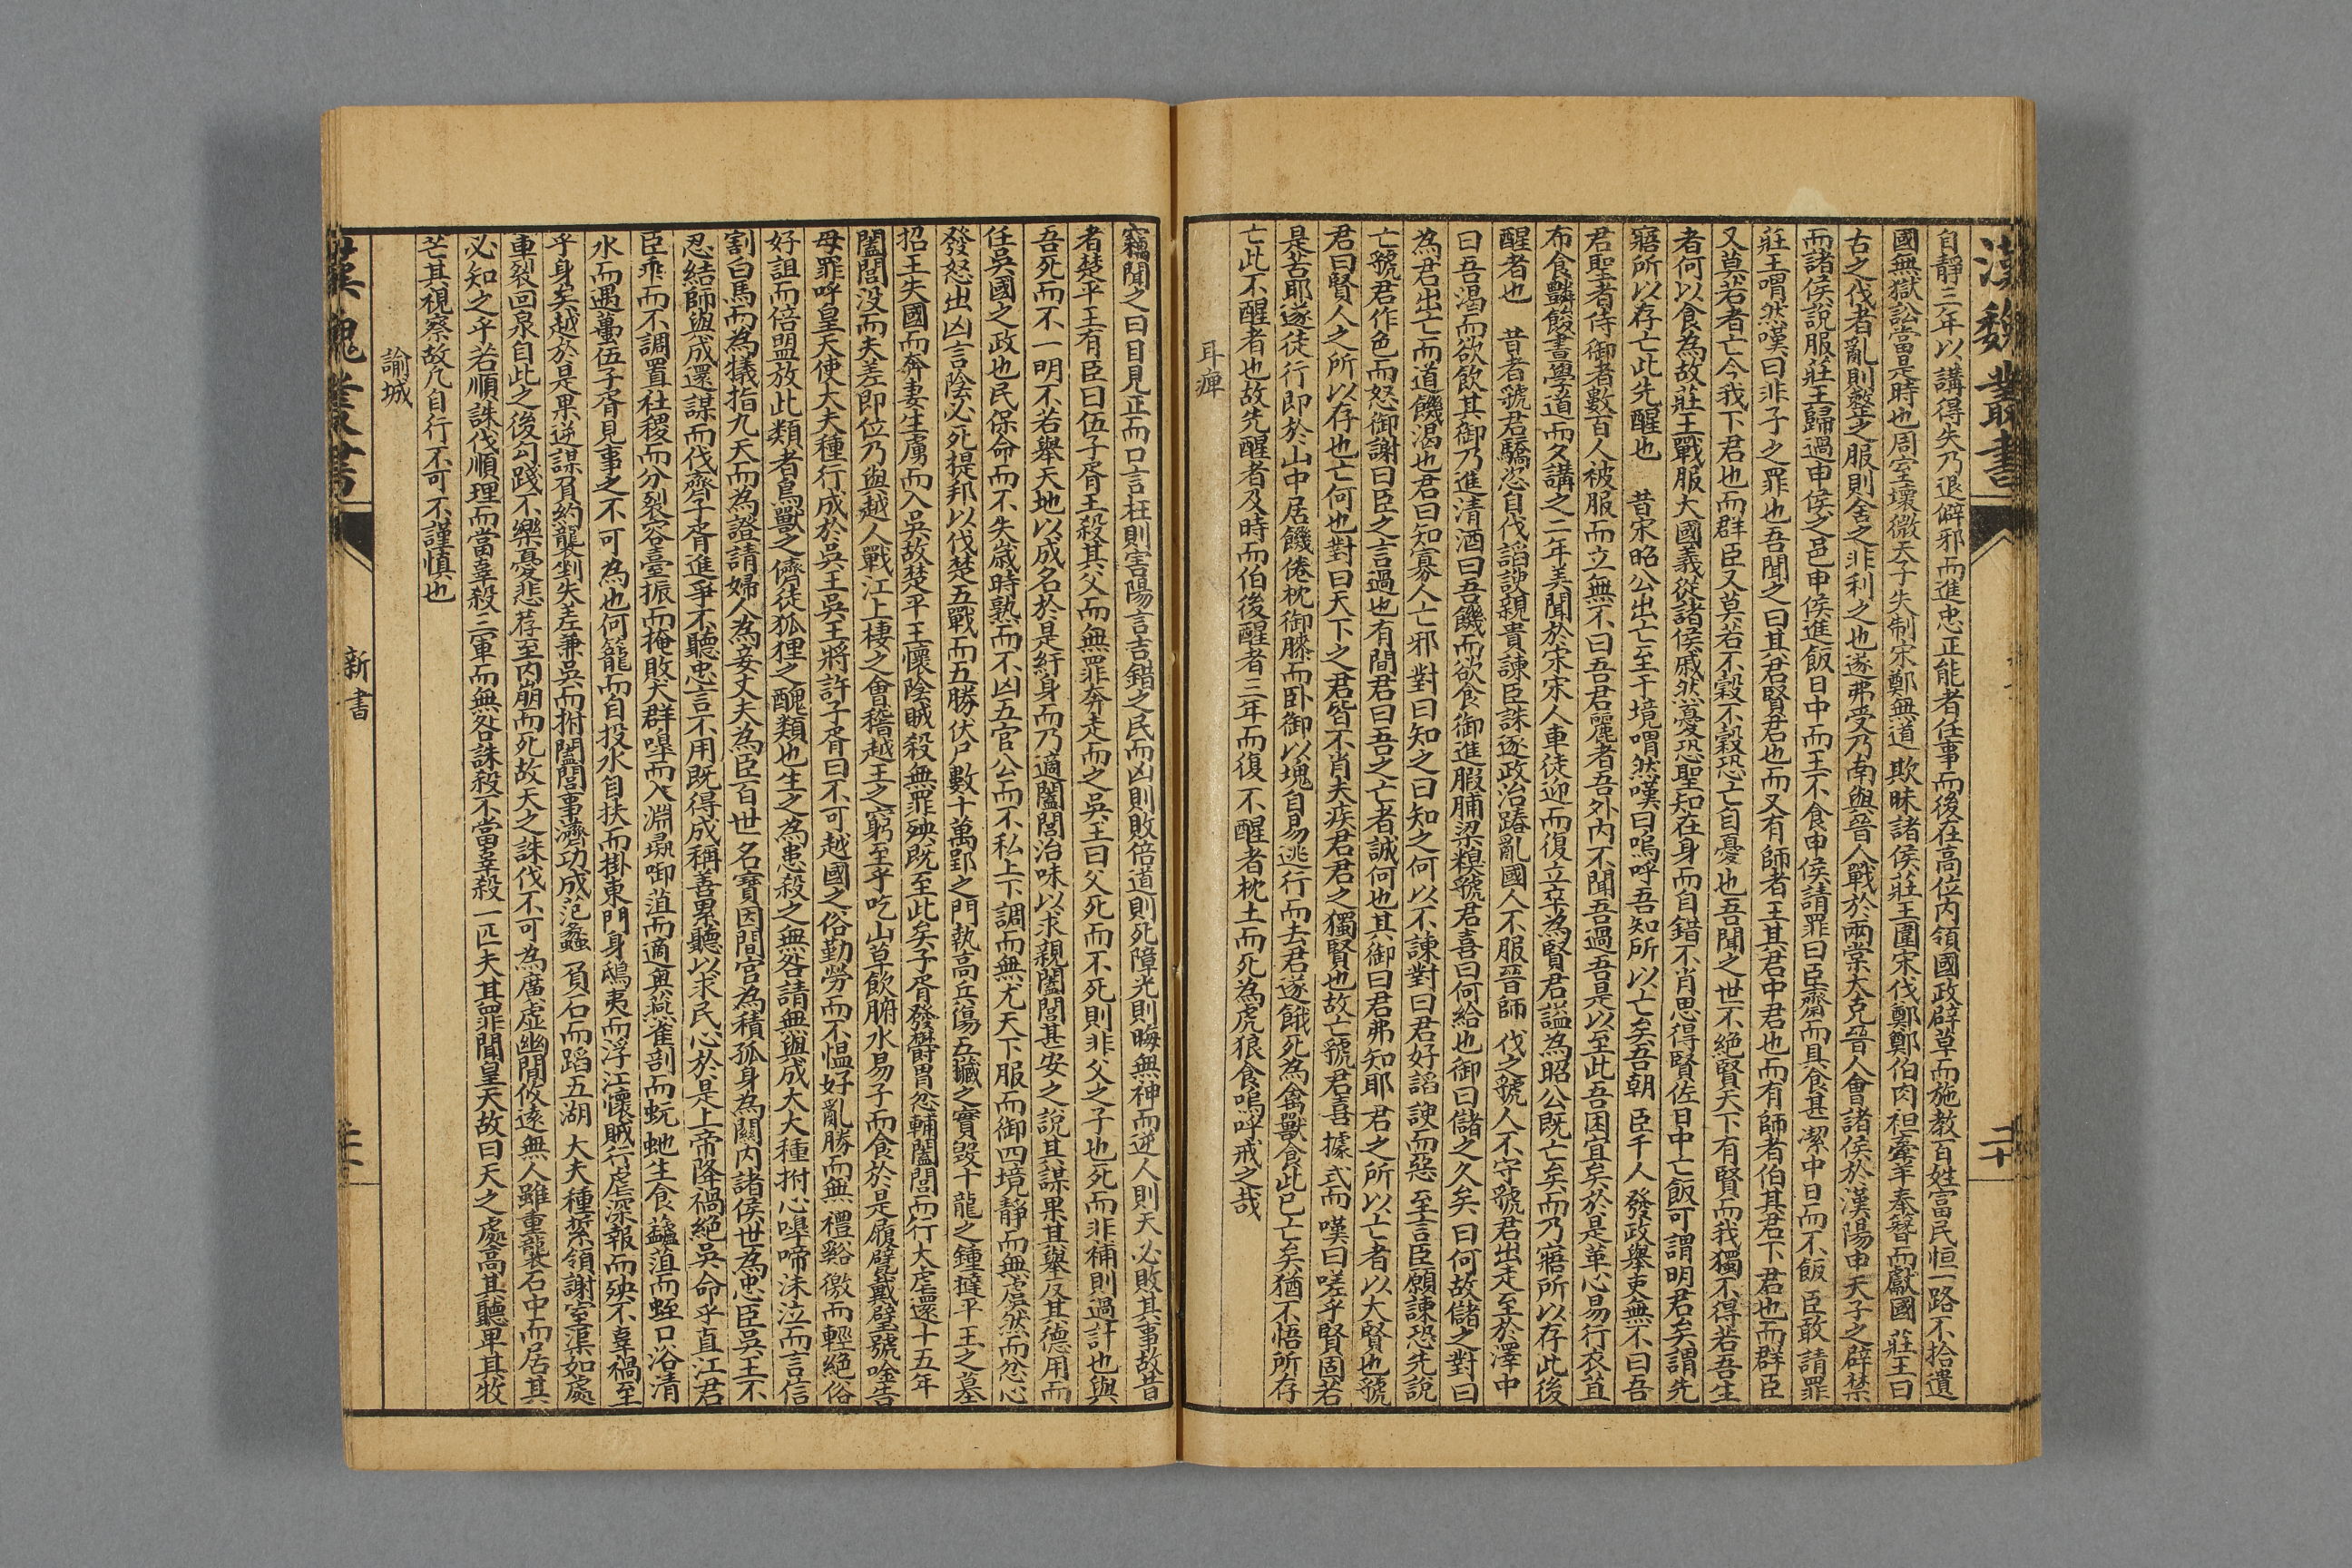 漢魏叢書
二十
自靜三年以講得失乃退僻邪而進忠正能者任事而後在高位內領國政辟草而施教百姓富民恒一路不拾遺
國無獄訟當是時也周室壞微天子失制宋鄭無道欺昧諸侯莊王圍宋伐鄭鄭伯肉袒牽羊奉簪而獻國莊王曰
古之伐者亂則整之服則舍之非利之也遂弗受乃南與晉人戰於兩棠大克晉人會諸侯於漢陽申天子之辟禁
而諸侯說服莊王歸過申侯之邑申侯進飯日中而王不食申侯請罪曰臣齋而具食甚潔中日而不飯臣敢請罪
莊王喟然嘆曰非子之罪也吾聞之曰其君賢君也而又有師者王其君中君也而有師者伯其君下君也而群臣
又莫若者亡今我下君也而群臣又莫若不穀不穀恐亡自憂也吾聞之世不絕賢天下有賢而我獨不得若吾生
者何以食為故莊王戰服大國義從諸侯戚然憂恐聖知在身而自錯不肖思得賢佐日中亡飯可謂明君矣謂先
寤所以存亡此先醒也　昔宋昭公出亡至于境喟然嘆曰嗚呼吾知所以亡矣吾朝臣千人發政舉吏無不曰吾
君聖者侍御者數百人被服而立無不曰吾君麗者吾外內不聞吾過吾是以至此吾困宜矣於是革心易行衣苴
布食䴢餕晝學道而夕講之二年美聞於宋宋人車徒迎而復立卒為賢君謚為昭公既亡矣而乃寤所以存此後
醒者也　昔者虢君驕恣自伐諂諛親貴諫臣誅逐政治踳亂國人不服晉師伐之虢人不守虢君出走至於澤中
曰吾渴而欲飲其御乃進清酒曰吾饑而欲食御進腶脯粱糗虢君喜曰何給也御曰儲之久矣曰何故儲之對曰
為君出亡而道饑渴也君曰知寡人亡邪對曰知之曰知之何以不諫對曰君好諂諛而惡至言臣願諫恐先說
亡虢君作色而怒御謝曰臣之言過也有間君曰吾之亡者誠何也其御曰君弗知耶君之所以亡者以大賢也虢
君曰賢人之所以存也亡何也對曰天下之君皆不肖夫疾君君之獨賢也故亡虢君喜據式而嘆曰嗟乎賢固若
是苦耶遂徒行即於山中居饑倦枕御膝而臥御以塊自易逃行而去君遂餓死為禽獸食此已亡矣猶不悟所存
亡此不醒者也故先醒者及時而伯後醒者三年而復不醒者枕土而死為虎狼食嗚呼戒之哉
耳痺
竊聞之曰目見正而口言枉則害陽言吉錯之民而凶則敗倍道則死障光則晦無神而逆人則天必敗其事故昔
者楚平王有臣曰伍子胥王殺其父而無罪奔走而之吳王曰父死而不死則非父之子也死而非補則過計也與
吾死而不一明不若舉天地以成名於是紆身而乃適闔閭治味以求親闔閭甚安之說其謀果其舉反其德用而
任吳國之政也民保命而不失歲時熟而不凶五官公而不私上下調而無尤天下服而御四境靜而無虞然而忿心
發怒出凶言陰必死提邦以伐楚五戰而五勝伏尸數十萬郢之門執高兵傷五臟之實毀十龍之鐘撻平王之墓
招王失國而奔妻生虜而入吳故楚平王懷陰賊殺無罪殃既至此矣子胥發鬱冒忿輔闔閭而行大虐還十五年
闔閭沒而夫差即位乃與越人戰江上棲之會稽越王之窮至乎吃山草飲腑水易子而食於是履甓戴璧號唫告
母罪呼皇天使大夫種行成於吳王吳王將許子胥曰不可越國之俗勤勞而不慍好亂勝而無禮谿徼而輕絕俗
好詛而倍盟放此類者鳥獸之儕徒狐狸之醜類也生之為患殺之無咎請無與成大夫種拊心嘷啼沬泣而言信
割白馬而為犧指九天而為證請婦人為妾丈夫為臣百世名寶因閒官為積孤身為關內諸侯世為忠臣吳王不
忍結師與成還謀而伐齊子胥進爭不聽忠言不用既得成稱善累聽以求民心於是上帝降禍絕吳命乎直江君
臣乖而不調置社稷而分裂容臺振而掩敗犬群嘷而入淵彘啣菹而適奧燕雀剖而蚖虵生食䘉菹而蛭口浴清
水而遇蠆伍子胥見事之不可為也何籠而自投水自扶而掛東門身鴟夷而浮江懷賊行虐深報而殃不辜禍至
乎身矣越於是果逆謀負約襲剉夫差兼吳而拊闔閭事濟功成范蠡負石而蹈五湖大夫種縶領謝室渠如處
車裂回泉自此之後勾踐不樂憂悲荐至內崩而死故天之誅伐不可為廣虛幽閒攸遠無人雖重襲石中而居其
必知之乎若順誅伐順理而當辜殺三軍而無咎誅殺不當辜殺一匹夫其罪聞皇天故曰天之處高其聽卑其牧
芒其視察故凡自行不可不謹慎也
諭城
漢魏叢書
新書